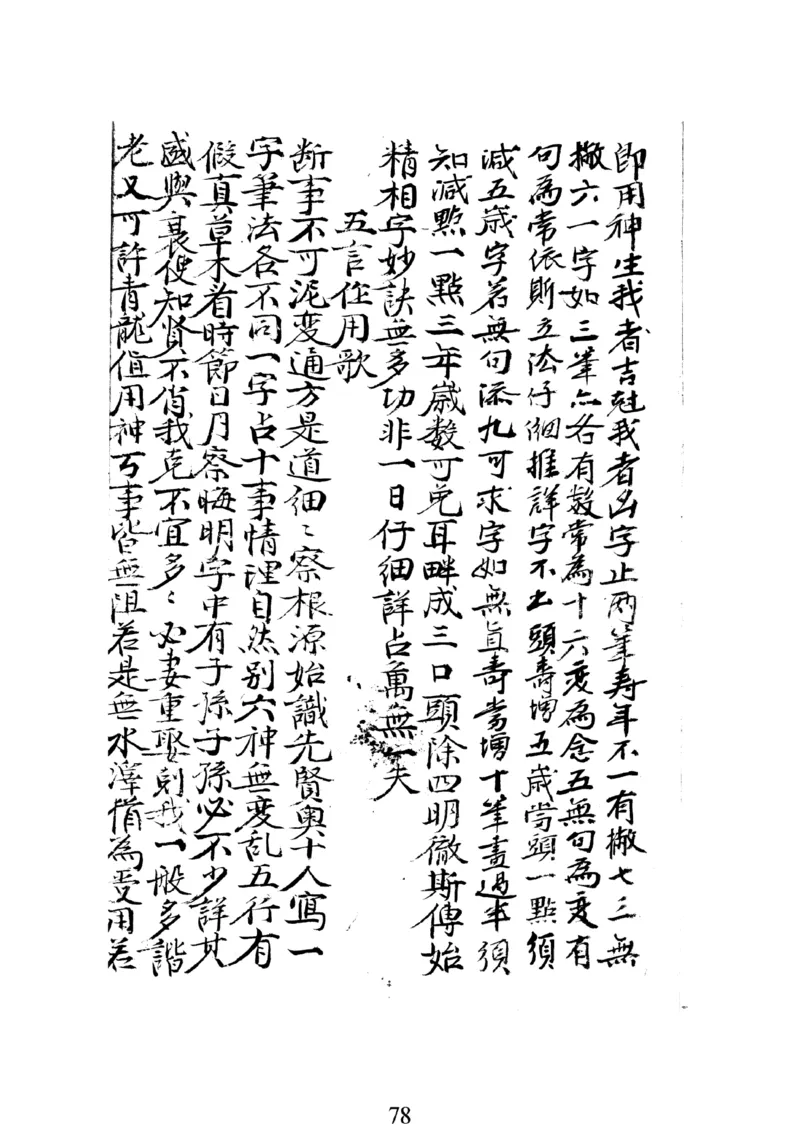 即用神生我者吉尅我者凶字止两筆寿年不一有撇七三無
撇六一字如三筆亦各有数常為十六変為念五無句為変有
句為常依斯立法仔細推詳字不出頭壽增五歲當頭一點須
減五歲字若無句添九可求字如無直壽當增十筆畫過半須
知減點一點三年歲數可免耳畔成三口頭除四明徹斯傳始
精相字妙訣無多功非一日仔細詳占萬無一失
五言作用歌
断事不可泥変通方是道細〻察根源始識先賢奥十人寫一
字筆法各不同一字占十事情理自然别六神無变乱五行有
假真草木看時節日月察晦明字中有子孫子孫必不少詳其
盛與衰便知賢不肖我克不宜多〻必妻重娶剋我一般多諧
老又可許青龍值用神万事皆無阻若是無水澤惜為受用若
78